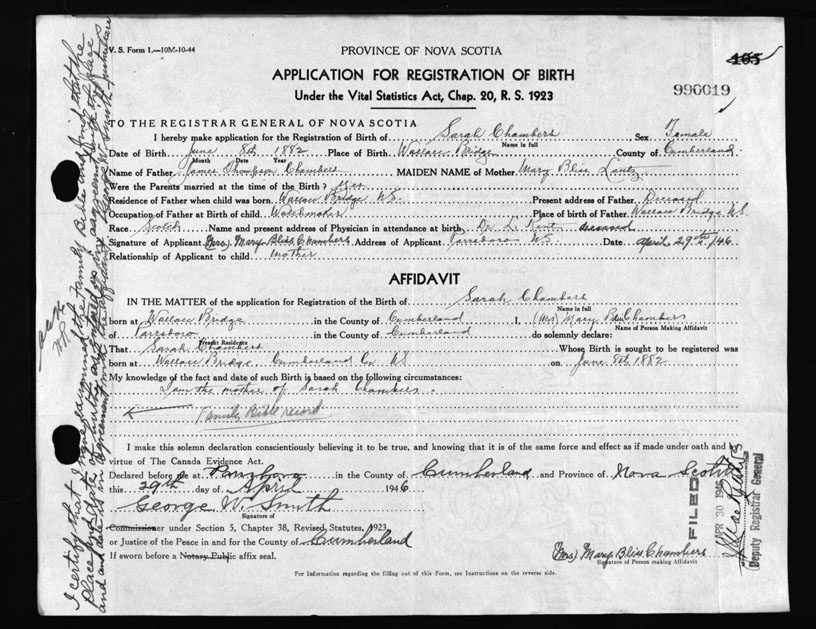 V. S. Form 1.—10M-10-44
PROVINCE OF NOVA SCOTIA
405
APPLICATION FOR REGISTRATION OF BIRTH
990019
Under the Vital Statistics Act, Chap. 20, R. S. 1923
TO THE REGISTRAR GENERAL OF NOVA SCOTIA
I hereby make application for the Registration of Birth of Sarah Chambers, Sex Female
Name in full
Date of Birth June 8th 1882 Place of Birth Wallace Bridge County of Cumberland
Month Date Year
Name of Father James Thompson Chambers MAIDEN NAME of Mother Mary Bliss Lantz
Were the Parents married at the time of the Birth? yes
Residence of Father when child was born Wallace Bridge N.S. Present address of Father Deceased
Occupation of Father at Birth of child Watchmaker Place of birth of Father Wallace Bridge N.S.
Race Scotch Name and present address of Physician in attendance at birth Dr. L. Kent deceased
Signature of Applicant (Mrs). Mary Bliss Chambers Address of Applicant Parrsboro N.S. Date April 29th /46
Relationship of Applicant to child mother
AFFIDAVIT
IN THE MATTER of the application for Registration of the Birth of Sarah Chambers
Name in full
born at Wallace Bridge in the County of Cumberland I, (Mrs) Mary Bliss Chambers
Name of Person Making Affidavit
of Parrsboro in the County of Cumberland do solemnly declare:
Present Residence
That Sarah Chambers Whose Birth is sought to be registered was
born at Wallace Bridge, Cumberland Co. N.S on June 8th, 1882
My knowledge of the fact and date of such Birth is based on the following circumstances:
I am the mother of Sarah Chambers.
Family Bible record
I make this solemn declaration conscientiously believing it to be true, and knowing that it is of the same force and effect as if made under oath and by
virtue of The Canada Evidence Act.
Declared before me at Parrsboro in the County of Cumberland and Province of Nova Scotia
this 29th day of April 1946
George W. Smith
Signature of
Commissioner under Section 5, Chapter 38, Revised Statutes, 1923
or Justice of the Peace in and for the County of Cumberland
If sworn before a Notary Public affix seal.
(Mrs) Mary Bliss Chambers
Signature of Person making Affidavit
For Information regarding the filling out of this Form, see Instructions on the reverse side.
FILED
APR 30 1946
Deputy Registrar General
I certify that I have perused the Family Bible and find that the